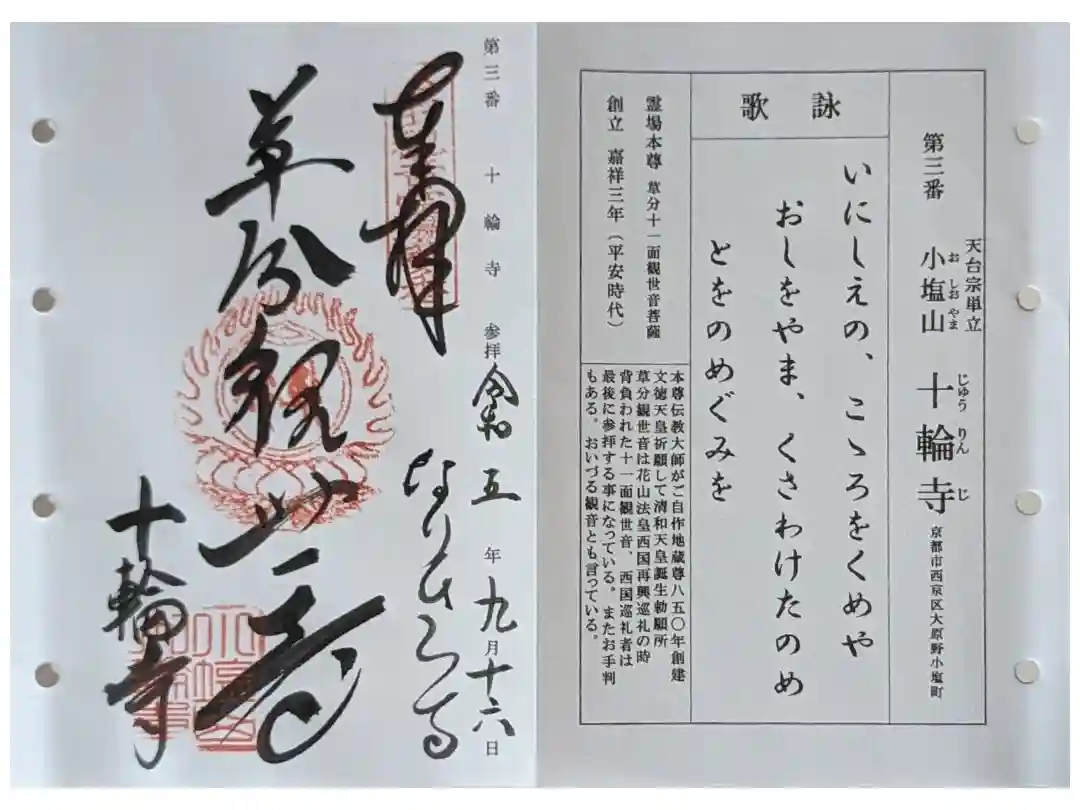 第三番
天台宗単立
小塩山 十輪寺
お しお やま
じゅう りん じ
京都市西京区大原野小塩町
詠歌
いにしえの、こゝろをくめや
おしをやま、くさわけたのめ
とをのめぐみを
霊場本尊 草分十一面観世音菩薩
創立 嘉祥三年(平安時代)
本尊伝教大師がご自作地蔵尊八五〇年創建
文徳天皇祈願して清和天皇誕生勅願所
草分観世音は花山法皇西国再興巡礼の時
背負われた十一面観世音、西国巡礼者は
最後に参拝する事になっている。またお手判
もある。おいづる観音とも言っている。
第三番 十輪寺 参拝 令和五年九月十六日
奉拝
なりひら寺
草分観世音
十輪寺